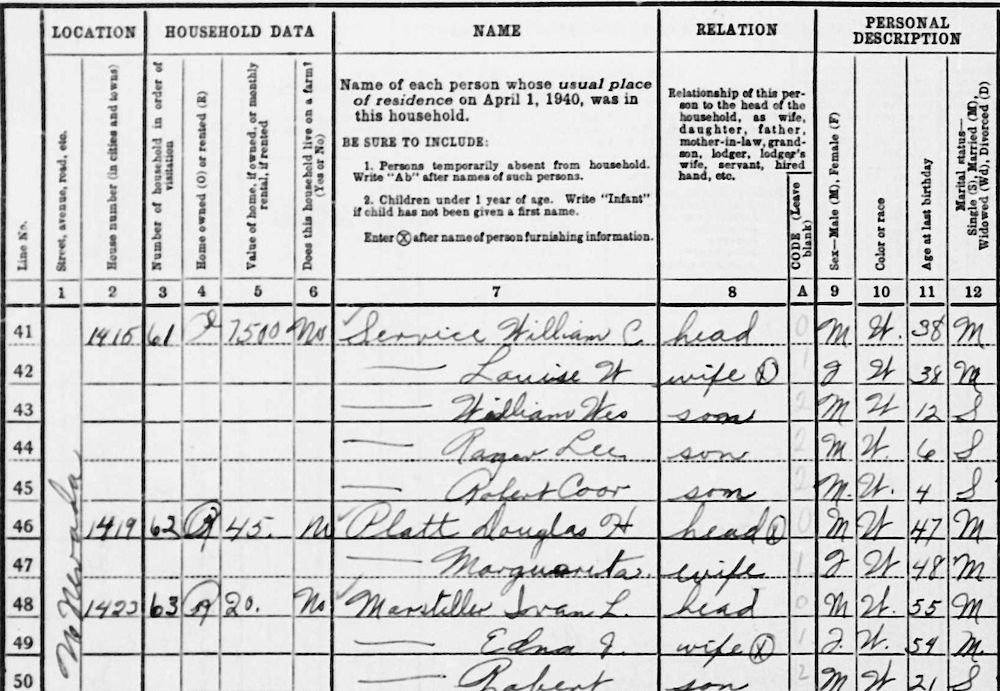 LOCATION HOUSEHOLD DATA NAME RELATION PERSONAL DESCRIPTION
Line No.
Street, avenue, road, etc.
House number (in cities and towns)
Number of household in order of visitation
Home owned (O) or rented (R)
Value of home, if owned, or monthly rental, if rented
Does this household live on a farm? (Yes or No)
Name of each person whose usual place
of residence on April 1, 1940, was in
this household.
BE SURE TO INCLUDE:
1. Persons temporarily absent from household.
Write "Ab" after names of such persons.
2. Children under 1 year of age. Write "Infant"
if child has not been given a first name.
Enter Ⓧ after name of person furnishing information.
Relationship of this per-
son to the head of the
household, as wife,
daughter, father,
mother-in-law, grand-
son, lodger, lodger's
wife, servant, hired
hand, etc.
CODE (Leave blank)
Sex—Male (M), Female (F)
Color or race
Age at last birthday
Marital status—
Single (S), Married (M),
Widowed (Wd), Divorced (D)
1 2 3 4 5 6 7 8 A 9 10 11 12
No Nevada
41 1415 61 O 7500 No Service William C head 0 M W. 38 M
42 — Louise W wife Ⓧ 1 F W 38 M
43 — William Wes son 2 M W 12 S
44 — Roger Lee son 2 M W. 6 S
45 — Robert Coor son 2 M. W. 4 S
46 1419 62 R 45. No Platt Douglas H head Ⓧ 0 M W 47 M
47 — Marguerita. wife 1 F W 48 M
48 1423 63 R 20. No Marstiller Ivan L. head 0 M W. 55 M
49 — Edna J. wife Ⓧ 1 F. W. 54 M.
50 — Robert son 2 M W 21 S